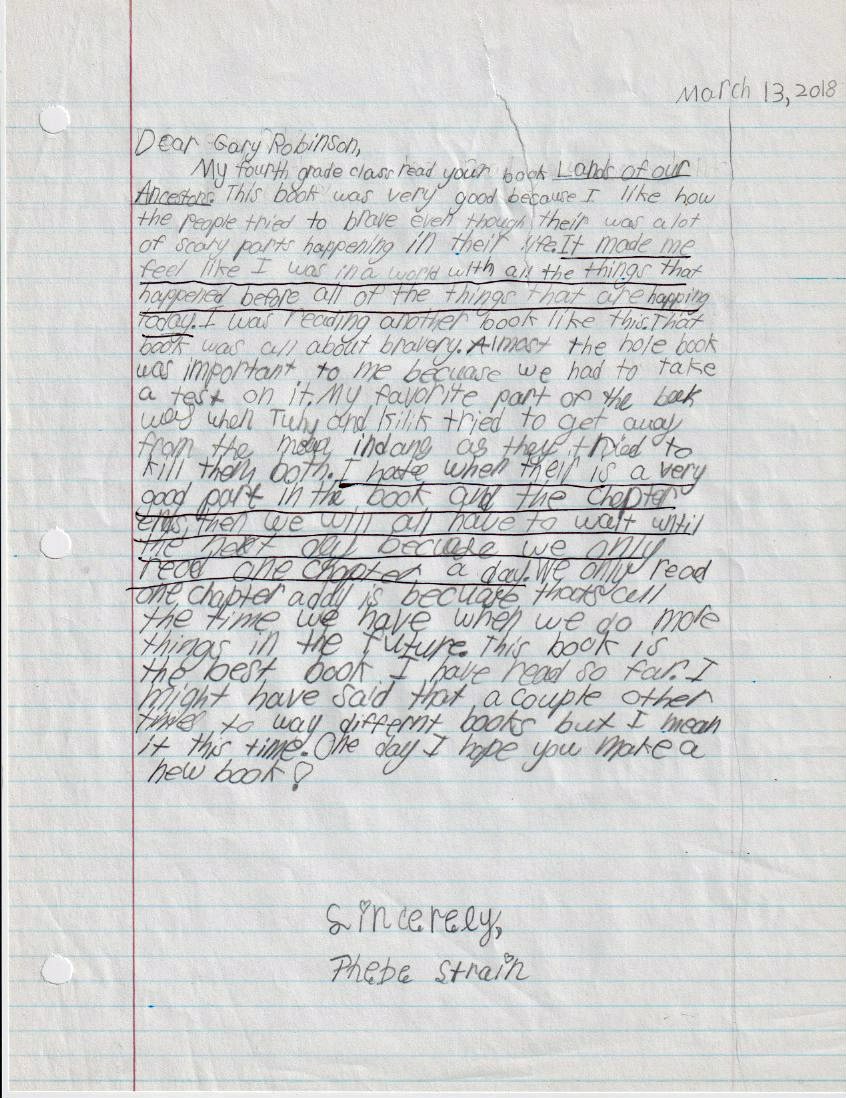 March 13, 2018
Dear Gary Robinson,
My fourth grade class read your book Lands of our
Ancestors. This book was very good because I like how
the people tried to brave even though their was a lot
of scary parts happening in their life. It made me
feel like I was in a world with all the things that
happened before all of the things that are happing
today. I was reading another book like this. That
book was all about bravery. Almost the hole book
was important to me becuase we had to take
a test on it. My favorite part of the book
was when Tuhy and Kilik tried to get away
from the as they tried to
kill them both. I hate when their is a very
good part in the book and the chapter
ends, then we will all have to wait until
the next day because we only
read one chapter a day. We only read
one chapter a is becuase thats all
the time we have when we do more
things in the future. This book is
the best book I have read so far. I
might have said that a couple other
times to way differnt books but I mean
it this time. One day I hope you make a
new book!
Sincerely,
Phebe Strain